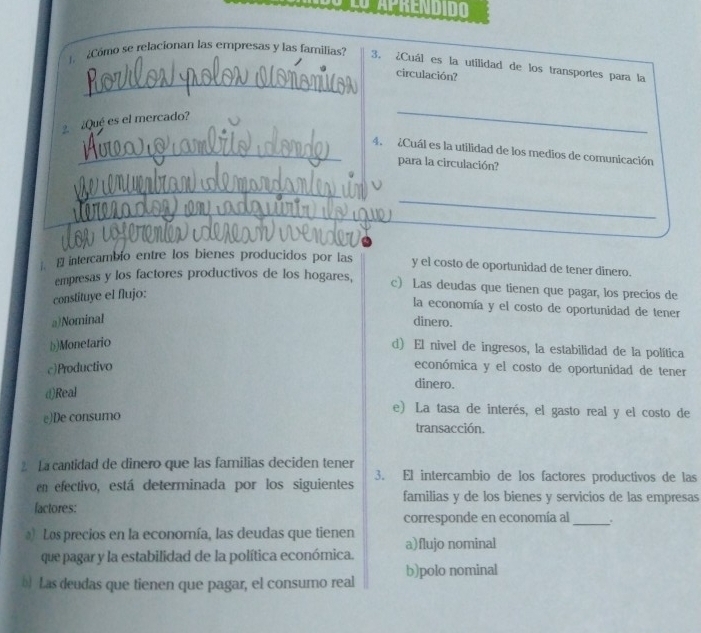 LO APRENDIDO
1. ¿Cómo se relacionan las empresas y las familias?
Por los polos económicos
2. ¿Qué es el mercado?
Area o ambito donde
se encuentran demandantes in
teresados en adquirir lo que
los oferentes desean vender
3. ¿Cuál es la utilidad de los transportes para la
circulación?
4. ¿Cuál es la utilidad de los medios de comunicación
para la circulación?
1. El intercambio entre los bienes producidos por las
empresas y los factores productivos de los hogares,
constituye el flujo:
a)Nominal
b)Monetario
c)Productivo
d)Real
e)De consumo
2. La cantidad de dinero que las familias deciden tener
en efectivo, está determinada por los siguientes
factores:
a) Los precios en la economía, las deudas que tienen
que pagar y la estabilidad de la política económica.
b) Las deudas que tienen que pagar, el consumo real
y el costo de oportunidad de tener dinero.
c) Las deudas que tienen que pagar, los precios de
la economía y el costo de oportunidad de tener
dinero.
d) El nivel de ingresos, la estabilidad de la política
económica y el costo de oportunidad de tener
dinero.
e) La tasa de interés, el gasto real y el costo de
transacción.
3. El intercambio de los factores productivos de las
familias y de los bienes y servicios de las empresas
corresponde en economía al ______.
a)flujo nominal
b)polo nominal